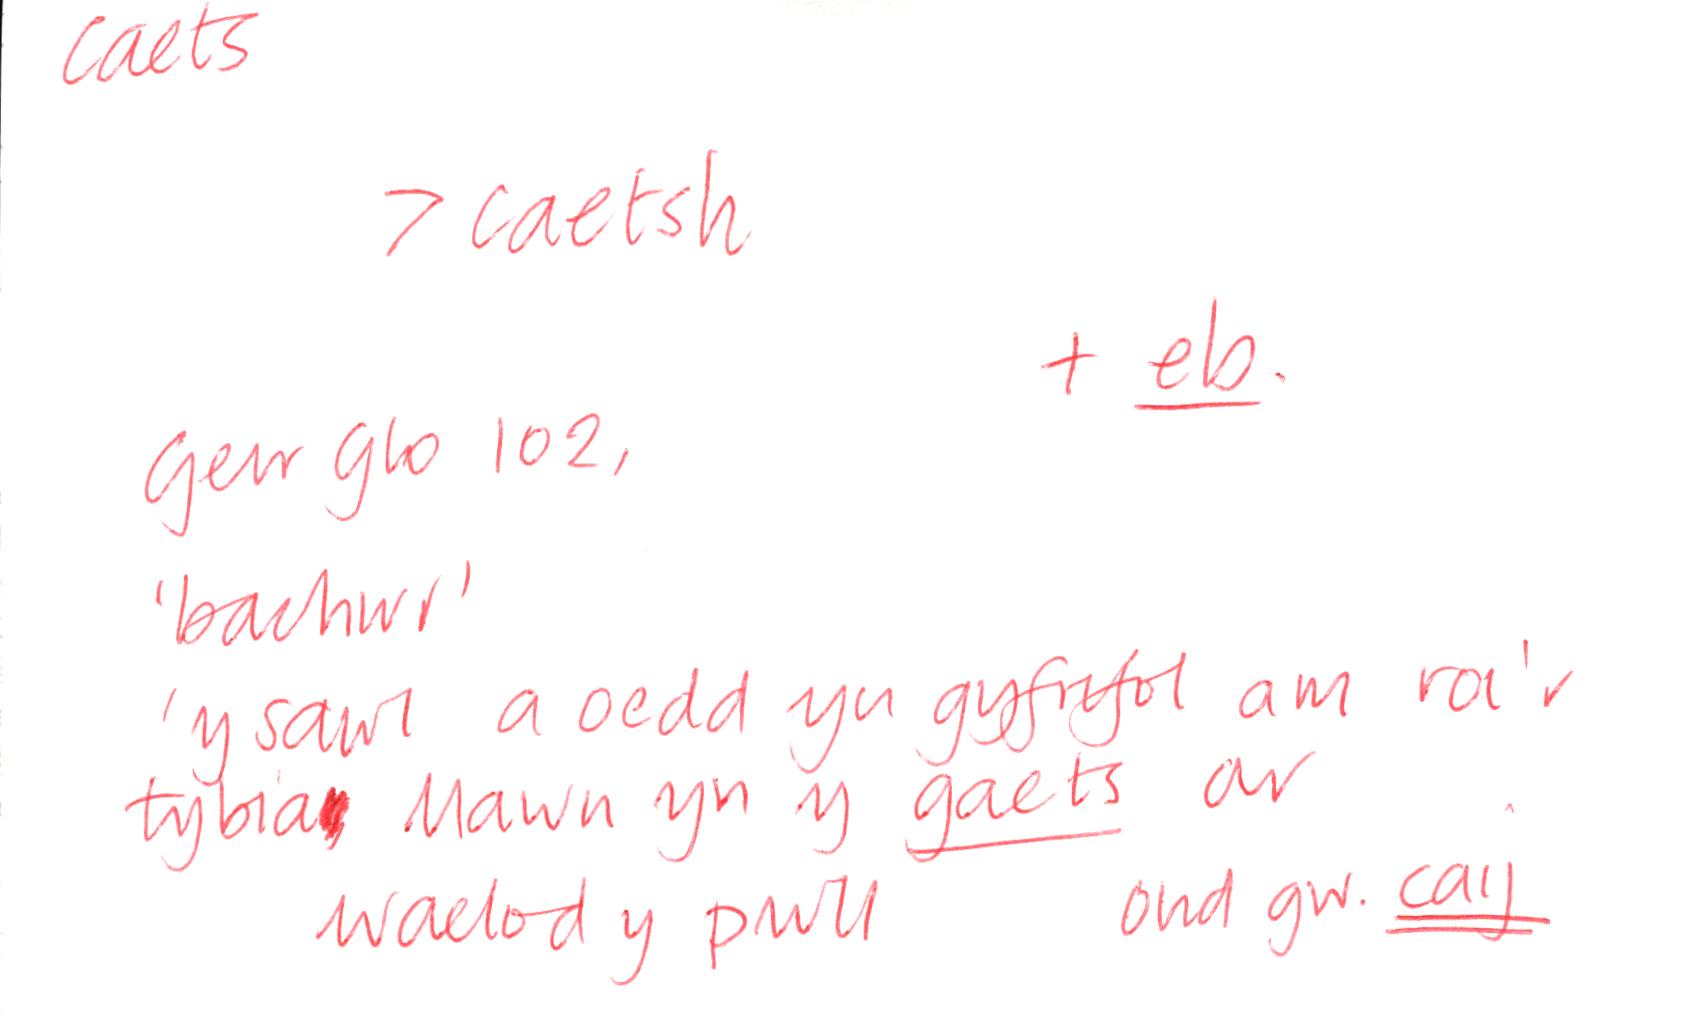 caets
> caetsh
+ eb.
Geir Glo 102,
'bachwr'
'y sawl a oedd yn gyfrifol am roi'r
tybia llawn yn y gaets ar
waelod y pwll
ond gw. caij